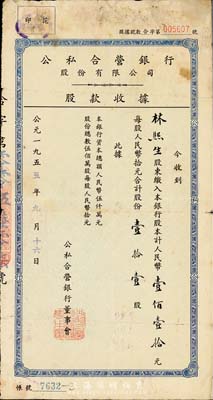 印花
股權號數合字第 005607 號
公私合營銀行
股份有限公司
股款收據
今收到
林熙生股東繳入本銀行股本計人民幣壹佰壹拾元
每股人民幣拾元合計股份壹拾壹股
此據
本銀行資本總額人民幣伍仟萬元
股份總數伍佰萬股每股人民幣拾元
公私合營銀行董事會
公元一九五五年九月十六日
帳號 7632-